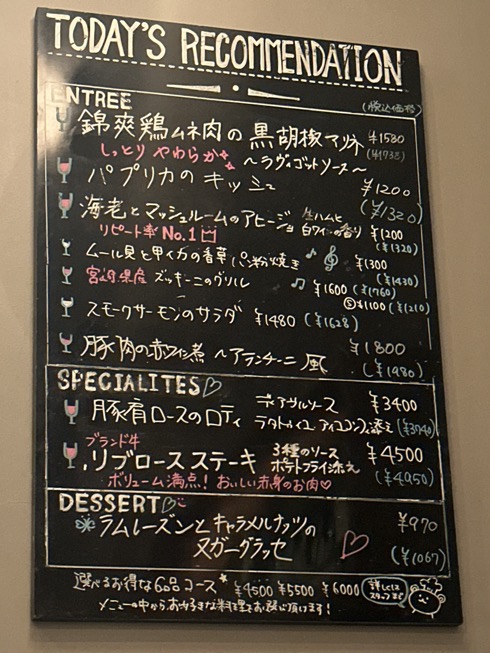 TODAY'S RECOMMENDATION
ENTREE
(税込価格)
錦爽鶏ムネ肉の黒胡椒マリネ ¥1580
しっとりやわらか ～ラヴィゴットソース～ (¥1738)
パプリカのキッシュ ¥1200
(¥1320)
海老とマッシュルームのアヒージョ 生ハムと白ワインの香り ¥1200
リピート率No.1 (¥1320)
ムール貝と甲イカの香草パン粉焼き ¥1300
(¥1430)
宮崎県産 ズッキーニのグリル ¥1600 (¥1760)
Ⓢ¥1100 (¥1210)
スモークサーモンのサラダ ¥1480 (¥1628)
豚肉の赤ワイン煮 ～アランチーニ風 ¥1800
(¥1980)
SPECIALITES
豚肩ロースのロティ ディアヴルソース ¥3400
ラタトゥイユ 添え (¥3740)
ブランド牛
リブロースステーキ 3種のソース ¥4500
ポテトフライ添え
ボリューム満点！おいしい赤身のお肉 (¥4950)
DESSERT
ラムレーズンとキャラメルナッツの ¥970
ヌガーグラッセ (¥1067)
選べるお得な6品コース ¥4500 ¥5500 ¥6000 詳しくはスタッフまで
メニューの中からお好きな料理をお選び頂けます！